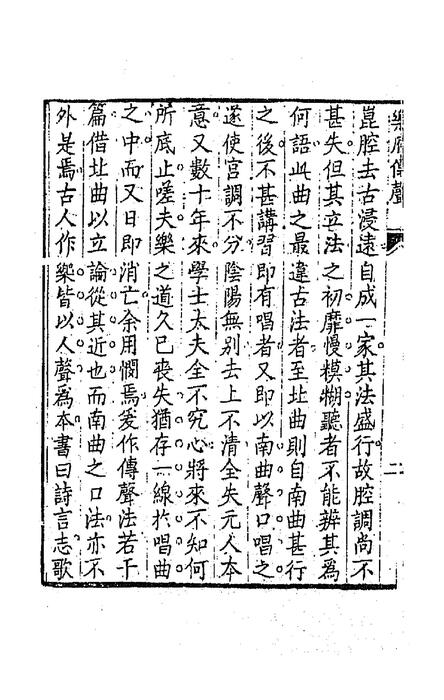 樂府傳聲
二
崑腔去古浸遠自成一家其法盛行故腔調尚不
甚失但其立法之初靡慢模糊聽者不能辨其為
何語此曲之最違古法者至北曲則自南曲甚行
之後不甚講習即有唱者又即以南曲聲口唱之
遂使宮調不分陰陽無别去上不清全失元人本
意又數十年來學士大夫全不究心將來不知何
所底止嗟夫樂之道久已喪失猶存一線於唱曲
之中而又日即消亡余用憫焉爰作傳聲法若干
篇借北曲以立論從其近也而南曲之口法亦不
外是焉古人作樂皆以人聲為本書曰詩言志歌